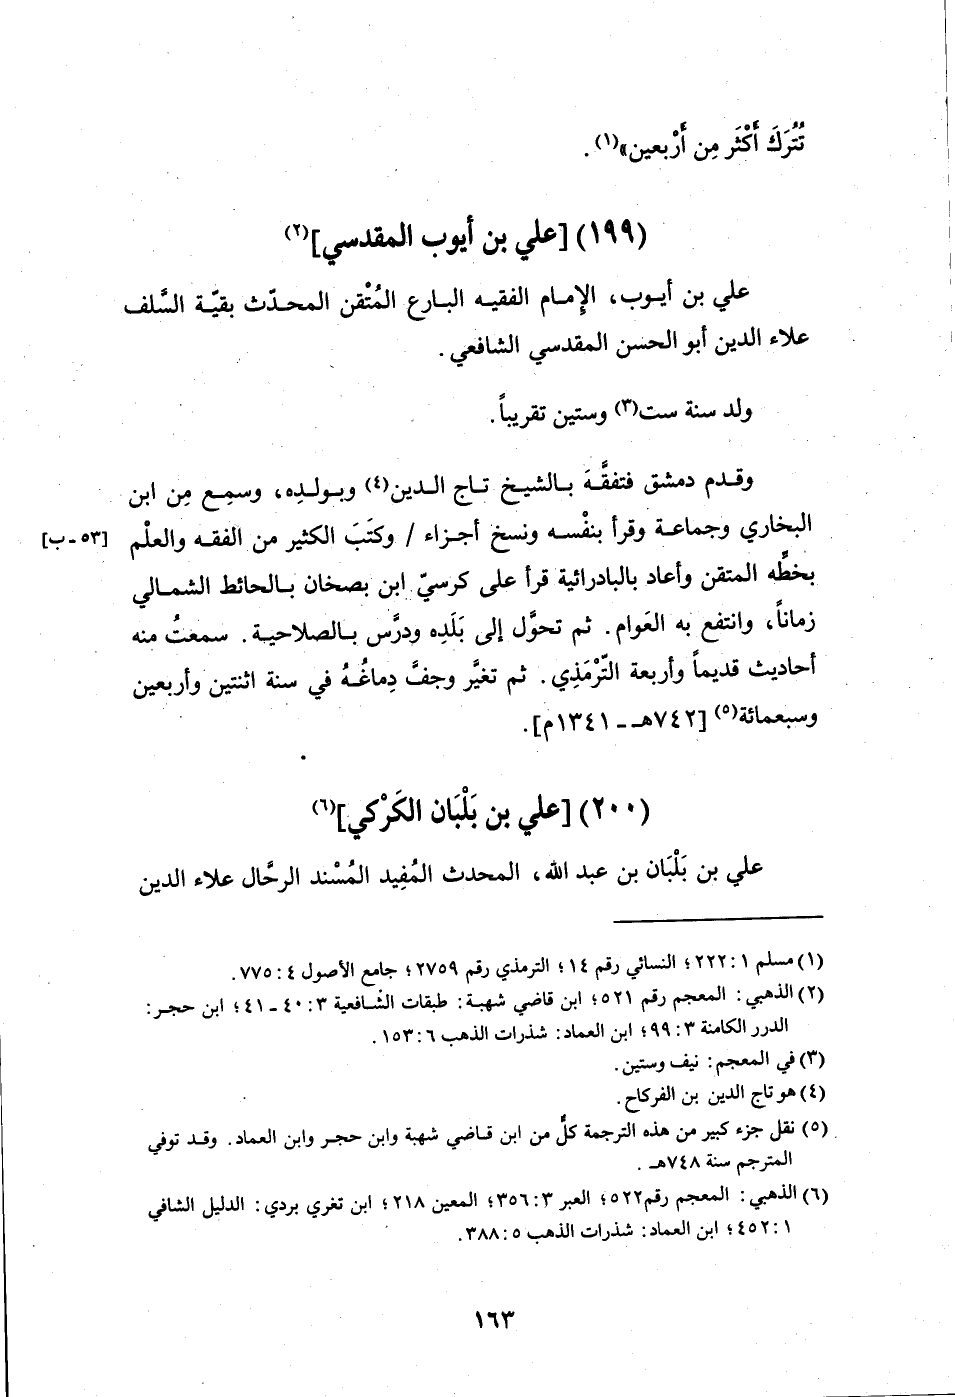 تُتْرَكَ أَكْثَر مِن أَرْبعين»(١) .
(١٩٩) [علي بن أيوب المقدسي](٢)
علي بن أيوب، الإمام الفقيه البارع المُتْقن المحدّث بقيّة السَّلف
علاء الدين أبو الحسن المقدسي الشافعي.
ولد سنة ست(٣) وستين تقريباً.
وقدم دمشق فتفقَّهَ بالشيخ تاج الدين(٤) وبولدِه، وسمِع مِن ابن
البخاري وجماعة وقرأ بنفْسه ونسخ أجزاء / وكتَبَ الكثير من الفقه والعلْم [٥٣ - ب]
بخطَّه المتقن وأعاد بالبادرائية قرأ على كرسيّ ابن بصخان بالحائط الشمالي
زماناً، وانتفع به العَوام. ثم تحوَّل إلى بَلَدِه ودرَّس بالصلاحية. سمعتُ منه
أحاديث قديماً وأربعة التِّرْمَذِي. ثم تغيَّر وجفَّ دِماغُهُ في سنة اثنتين وأربعين
وسبعمائة(٥) [٧٤٢هـ - ١٣٤١م].
(٢٠٠) [علي بن بَلْبَان الكَرْكي](٦)
علي بن بَلْبَان بن عبد الله، المحدث المُفِيد المُسْند الرحَّال علاء الدين
(١) مسلم ١ : ٢٢٢؛ النسائي رقم ١٤؛ الترمذي رقم ٢٧٥٩؛ جامع الأصول ٤ : ٧٧٥.
(٢) الذهبي: المعجم رقم ٥٢١؛ ابن قاضي شهبة: طبقات الشافعية ٣ : ٤٠ - ٤١؛ ابن حجر:
الدرر الكامنة ٣ : ٩٩؛ ابن العماد: شذرات الذهب ٦ : ١٥٣.
(٣) في المعجم: نيف وستين.
(٤) هو تاج الدين بن الفركاح.
(٥) نقل جزء كبير من هذه الترجمة كلٌّ من ابن قاضي شهبة وابن حجر وابن العماد. وقد توفي
المترجم سنة ٧٤٨هـ.
(٦) الذهبي: المعجم رقم٥٢٢؛ العبر ٣ : ٣٥٦؛ المعين ٢١٨؛ ابن تغري بردي: الدليل الشافي
١ : ٤٥٢؛ ابن العماد: شذرات الذهب ٥ : ٣٨٨.
١٦٣